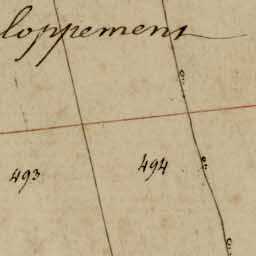 loppement
493
494